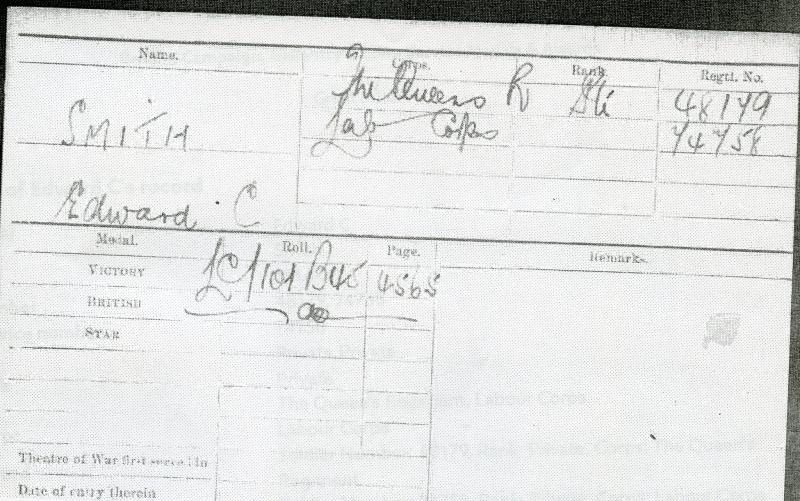 Name. Corps. Rank. Regtl. No.
The Queens R Pte 48179
SMITH Lab Corps 74758
Edward. C
Medal. Roll. Page. Remarks.
VICTORY LC/101 B45 4565
BRITISH do
STAR
Theatre of War first served in
Date of entry therein